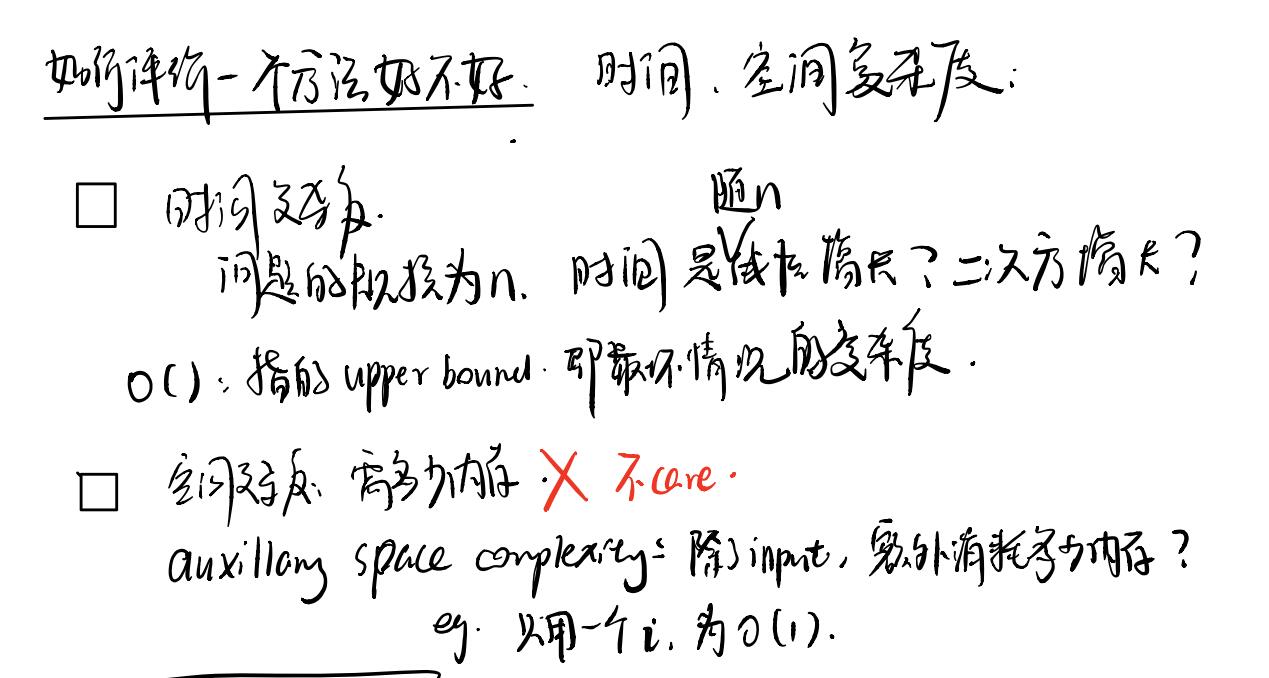 如何评价一个方法好不好. 时间、空间复杂度:
□ 时间复杂度.
问题的规模为n. 时间是随n线性增长？二次方增长？
O(): 指的 upper bound. 即最坏情况的复杂度.
□ 空间复杂度: 需多少内存. X 不care.
auxillary space complexity: 除了input, 额外消耗多少内存？
eg. 只用一个i, 为O(1).